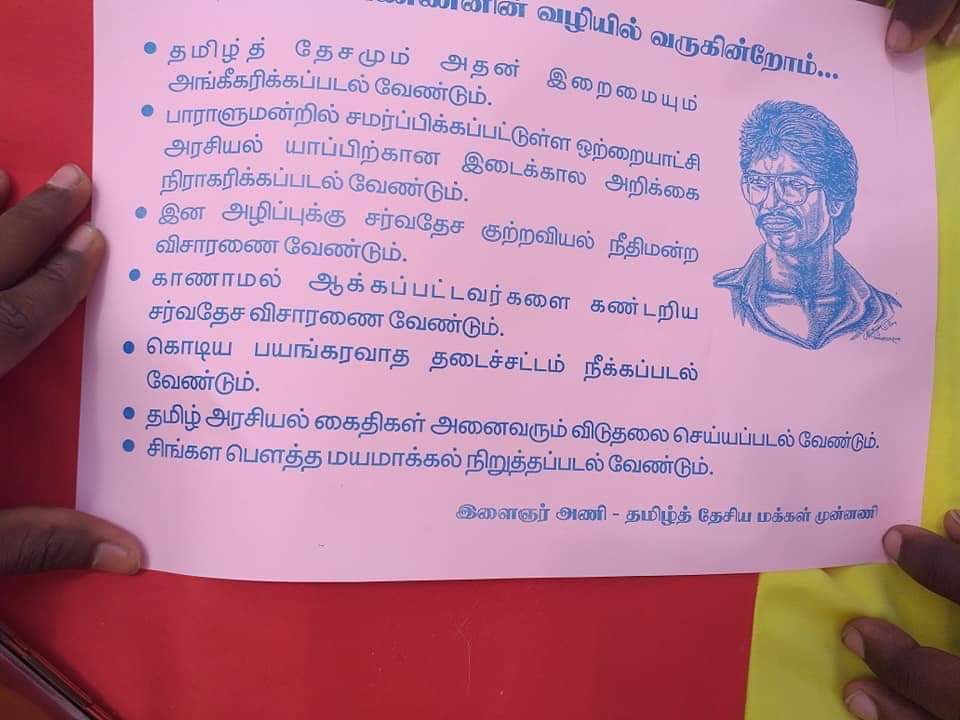 வழியில் வருகின்றோம்...
• தமிழ்த் தேசமும் அதன் இறைமையும்
அங்கீகரிக்கப்படல் வேண்டும்.
• பாராளுமன்றில் சமர்ப்பிக்கப்பட்டுள்ள ஒற்றையாட்சி
அரசியல் யாப்பிற்கான இடைக்கால அறிக்கை
நிராகரிக்கப்படல் வேண்டும்.
• இன அழிப்புக்கு சர்வதேச குற்றவியல் நீதிமன்ற
விசாரணை வேண்டும்.
• காணாமல் ஆக்கப்பட்டவர்களை கண்டறிய
சர்வதேச விசாரணை வேண்டும்.
• கொடிய பயங்கரவாத தடைச்சட்டம் நீக்கப்படல்
வேண்டும்.
• தமிழ் அரசியல் கைதிகள் அனைவரும் விடுதலை செய்யப்படல் வேண்டும்.
• சிங்கள பௌத்த மயமாக்கல் நிறுத்தப்படல் வேண்டும்.
இளைஞர் அணி - தமிழ்த் தேசிய மக்கள் முன்னணி